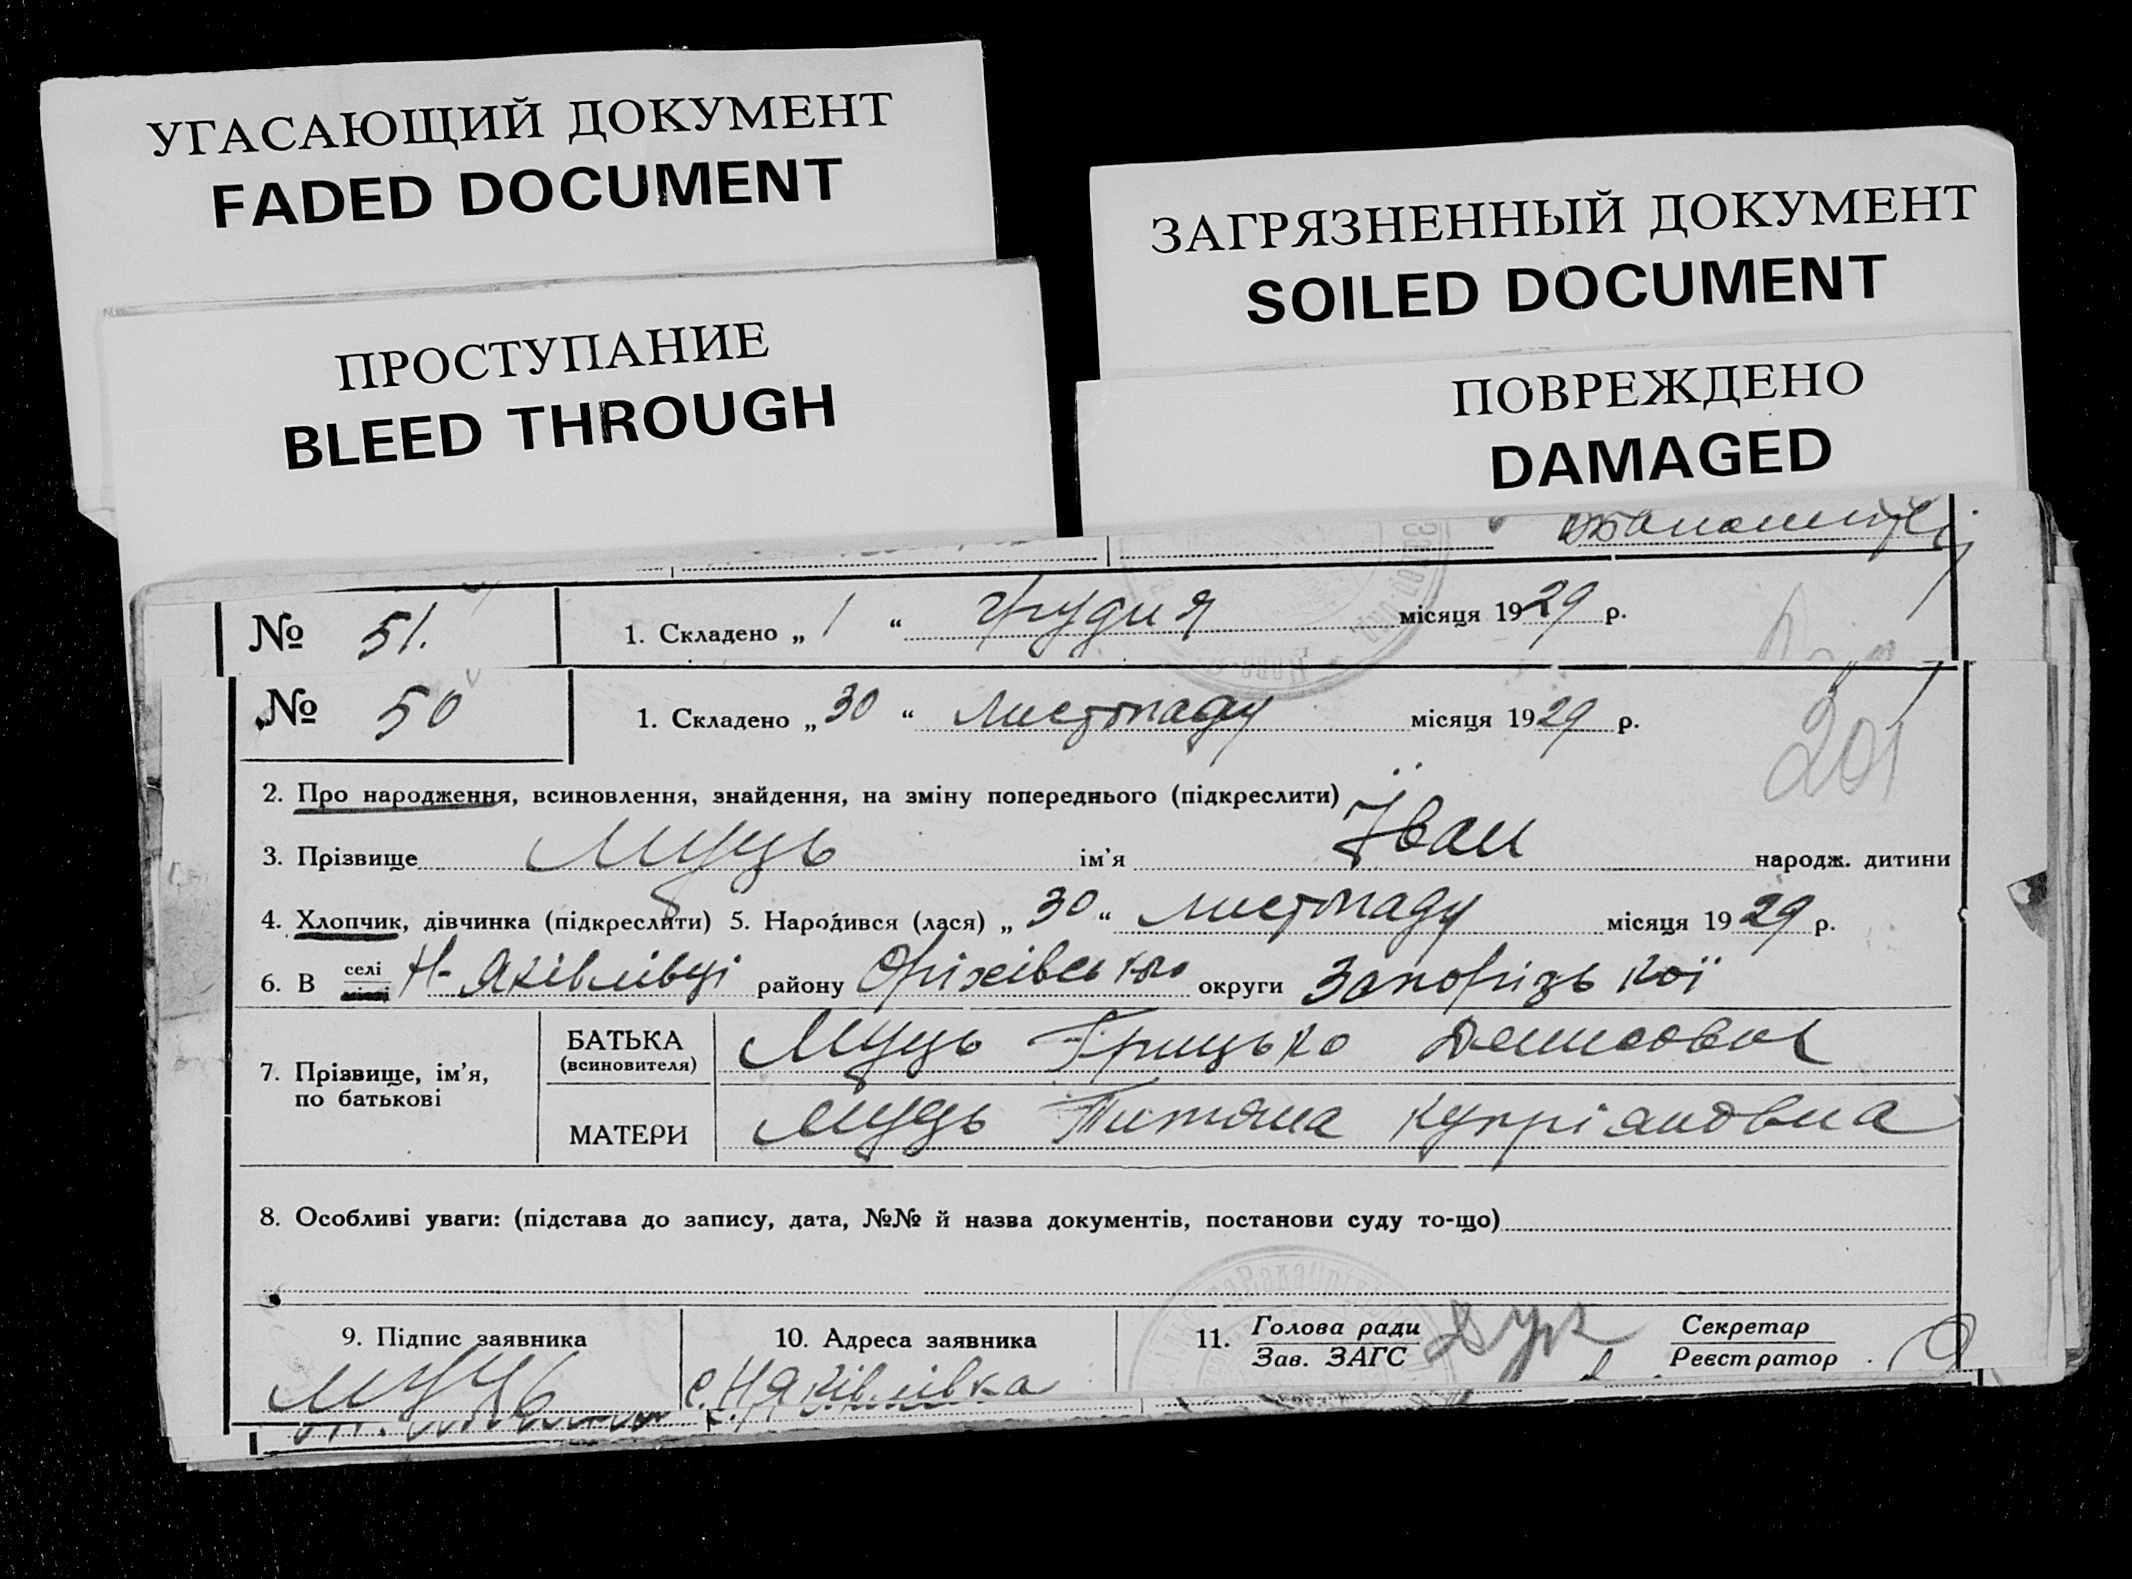 УГАСАЮЩИЙ ДОКУМЕНТ
FADED DOCUMENT
ПРОСТУПАНИЕ
BLEED THROUGH
ЗАГРЯЗНЕННЫЙ ДОКУМЕНТ
SOILED DOCUMENT
ПОВРЕЖДЕНО
DAMAGED
№ 51. 1. Складено „ 1 “ грудня місяця 1929 р.
№ 50 1. Складено „ 30 “ листопаду місяця 1929 р.
201
2. Про народження, всиновлення, знайдення, на зміну попереднього (підкреслити)
3. Прізвище Муць ім’я Їван народж. дитини
4. Хлопчик, дівчинка (підкреслити) 5. Народився (лася) „ 30 “ листопаду місяця 1929 р.
6. В селі Н-Яківлівці району Оріхівсько округи Запорізької
7. Прізвище, ім’я, по батькові
БАТЬКА (всиновителя) Муць Грицько Денисович
МАТЕРИ Муць Титяна Купріяновна
8. Особливі уваги: (підстава до запису, дата, №№ й назва документів, постанови суду то-що)
9. Підпис заявника 10. Адреса заявника 11. Голова ради Секретар
Зав. ЗАГС Реєстратор
Муць с. Н Яківлівка